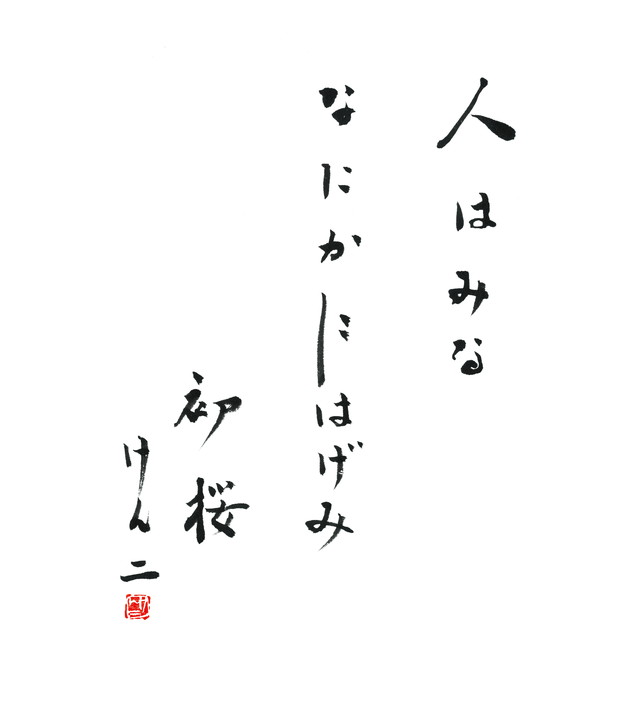 人はみな
なにかにはげみ
初桜
けん二